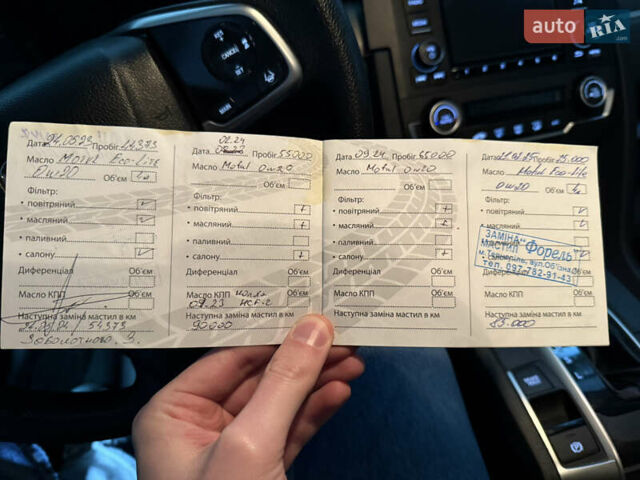 auto RIA
.com
CANCEL
Дата 24.05.23 Пробіг
Масло Motul Eco-Lite
0w20 Об'єм 4л
Фільтр:
• повітряний
• масляний
• паливний
• салону
Диференціал Об'єм
Масло КПП Об'єм
Наступна заміна мастил в км
54373
02.24
Дата Пробіг 55000
Масло Motul 0w20
Об'єм
Фільтр:
• повітряний +
• масляний +
• паливний
• салону +
Диференціал Об'єм
Масло КПП Об'єм
Наступна заміна мастил в км
90.000
Дата 09.24 Пробіг 65000
Масло Motul 0w20
Об'єм
Фільтр:
• повітряний +
• масляний +
• паливний
• салону +
Диференціал Об'єм
Масло КПП Об'єм
Наступна заміна мастил в км
Дата Пробіг
Масло Motul Eco-lite
0w20 Об'єм 4л
Фільтр:
• повітряний
• масляний
ЗАМІНА "Форель"
МАСТИЛ
тел. 097-782-91-43
Диференціал
Масло КПП Об'єм
Наступна заміна мастил в км
85.000